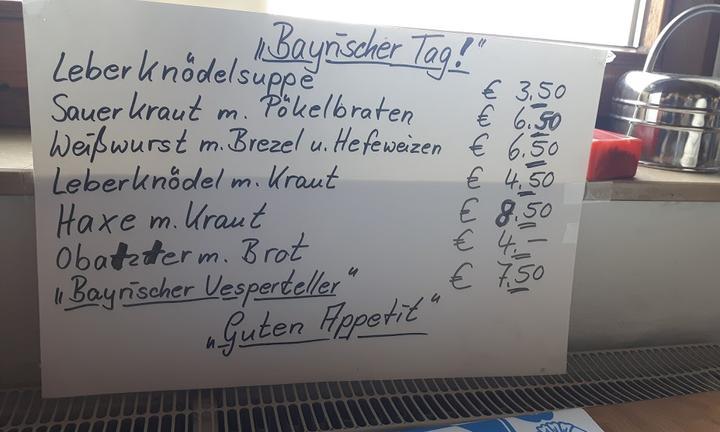 „Bayrischer Tag!"
Leberknödelsuppe € 3.50
Sauerkraut m. Pökelbraten € 6.50
Weißwurst m. Brezel u. Hefeweizen € 6.50
Leberknödel m. Kraut € 4.50
Haxe m. Kraut € 8.50
Obatzter m. Brot € 4.–
„Bayrischer Vesperteller" € 7.50
„Guten Appetit"